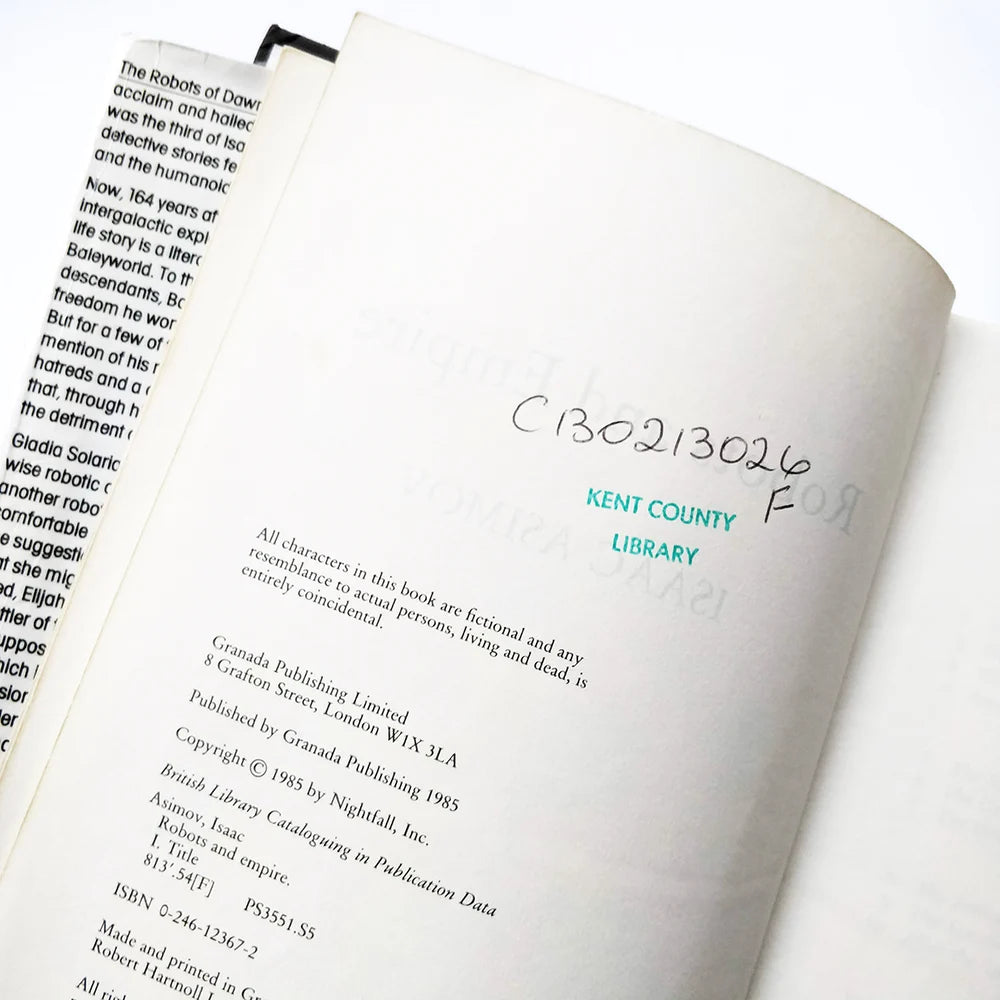 The Robots of Dawn
acclaim and hailed
was the third of Isa
detective stories fe
and the humanoid
Now, 164 years af
intergalactic expl
life story is a litera
Baleyworld. To th
descendants, Ba
freedom he wor
But for a few of
mention of his r
hatreds and a
that, through h
the detriment
Gladia Solaria
wise robotic
another robo
comfortable
e suggesti
at she mig
ed, Elijah
ttler of
uppos
hich
sion
der
C130213026
F
KENT COUNTY
LIBRARY
All characters in this book are fictional and any
resemblance to actual persons, living and dead, is
entirely coincidental.
Granada Publishing Limited
8 Grafton Street, London W1X 3LA
Published by Granada Publishing 1985
Copyright © 1985 by Nightfall, Inc.
British Library Cataloguing in Publication Data
Asimov, Isaac
Robots and empire.
I. Title
813'.54[F] PS3551.S5
ISBN 0-246-12367-2
Made and printed in Gr
Robert Hartnoll
All righ
Robots and Empire
ISAAC ASIMOV